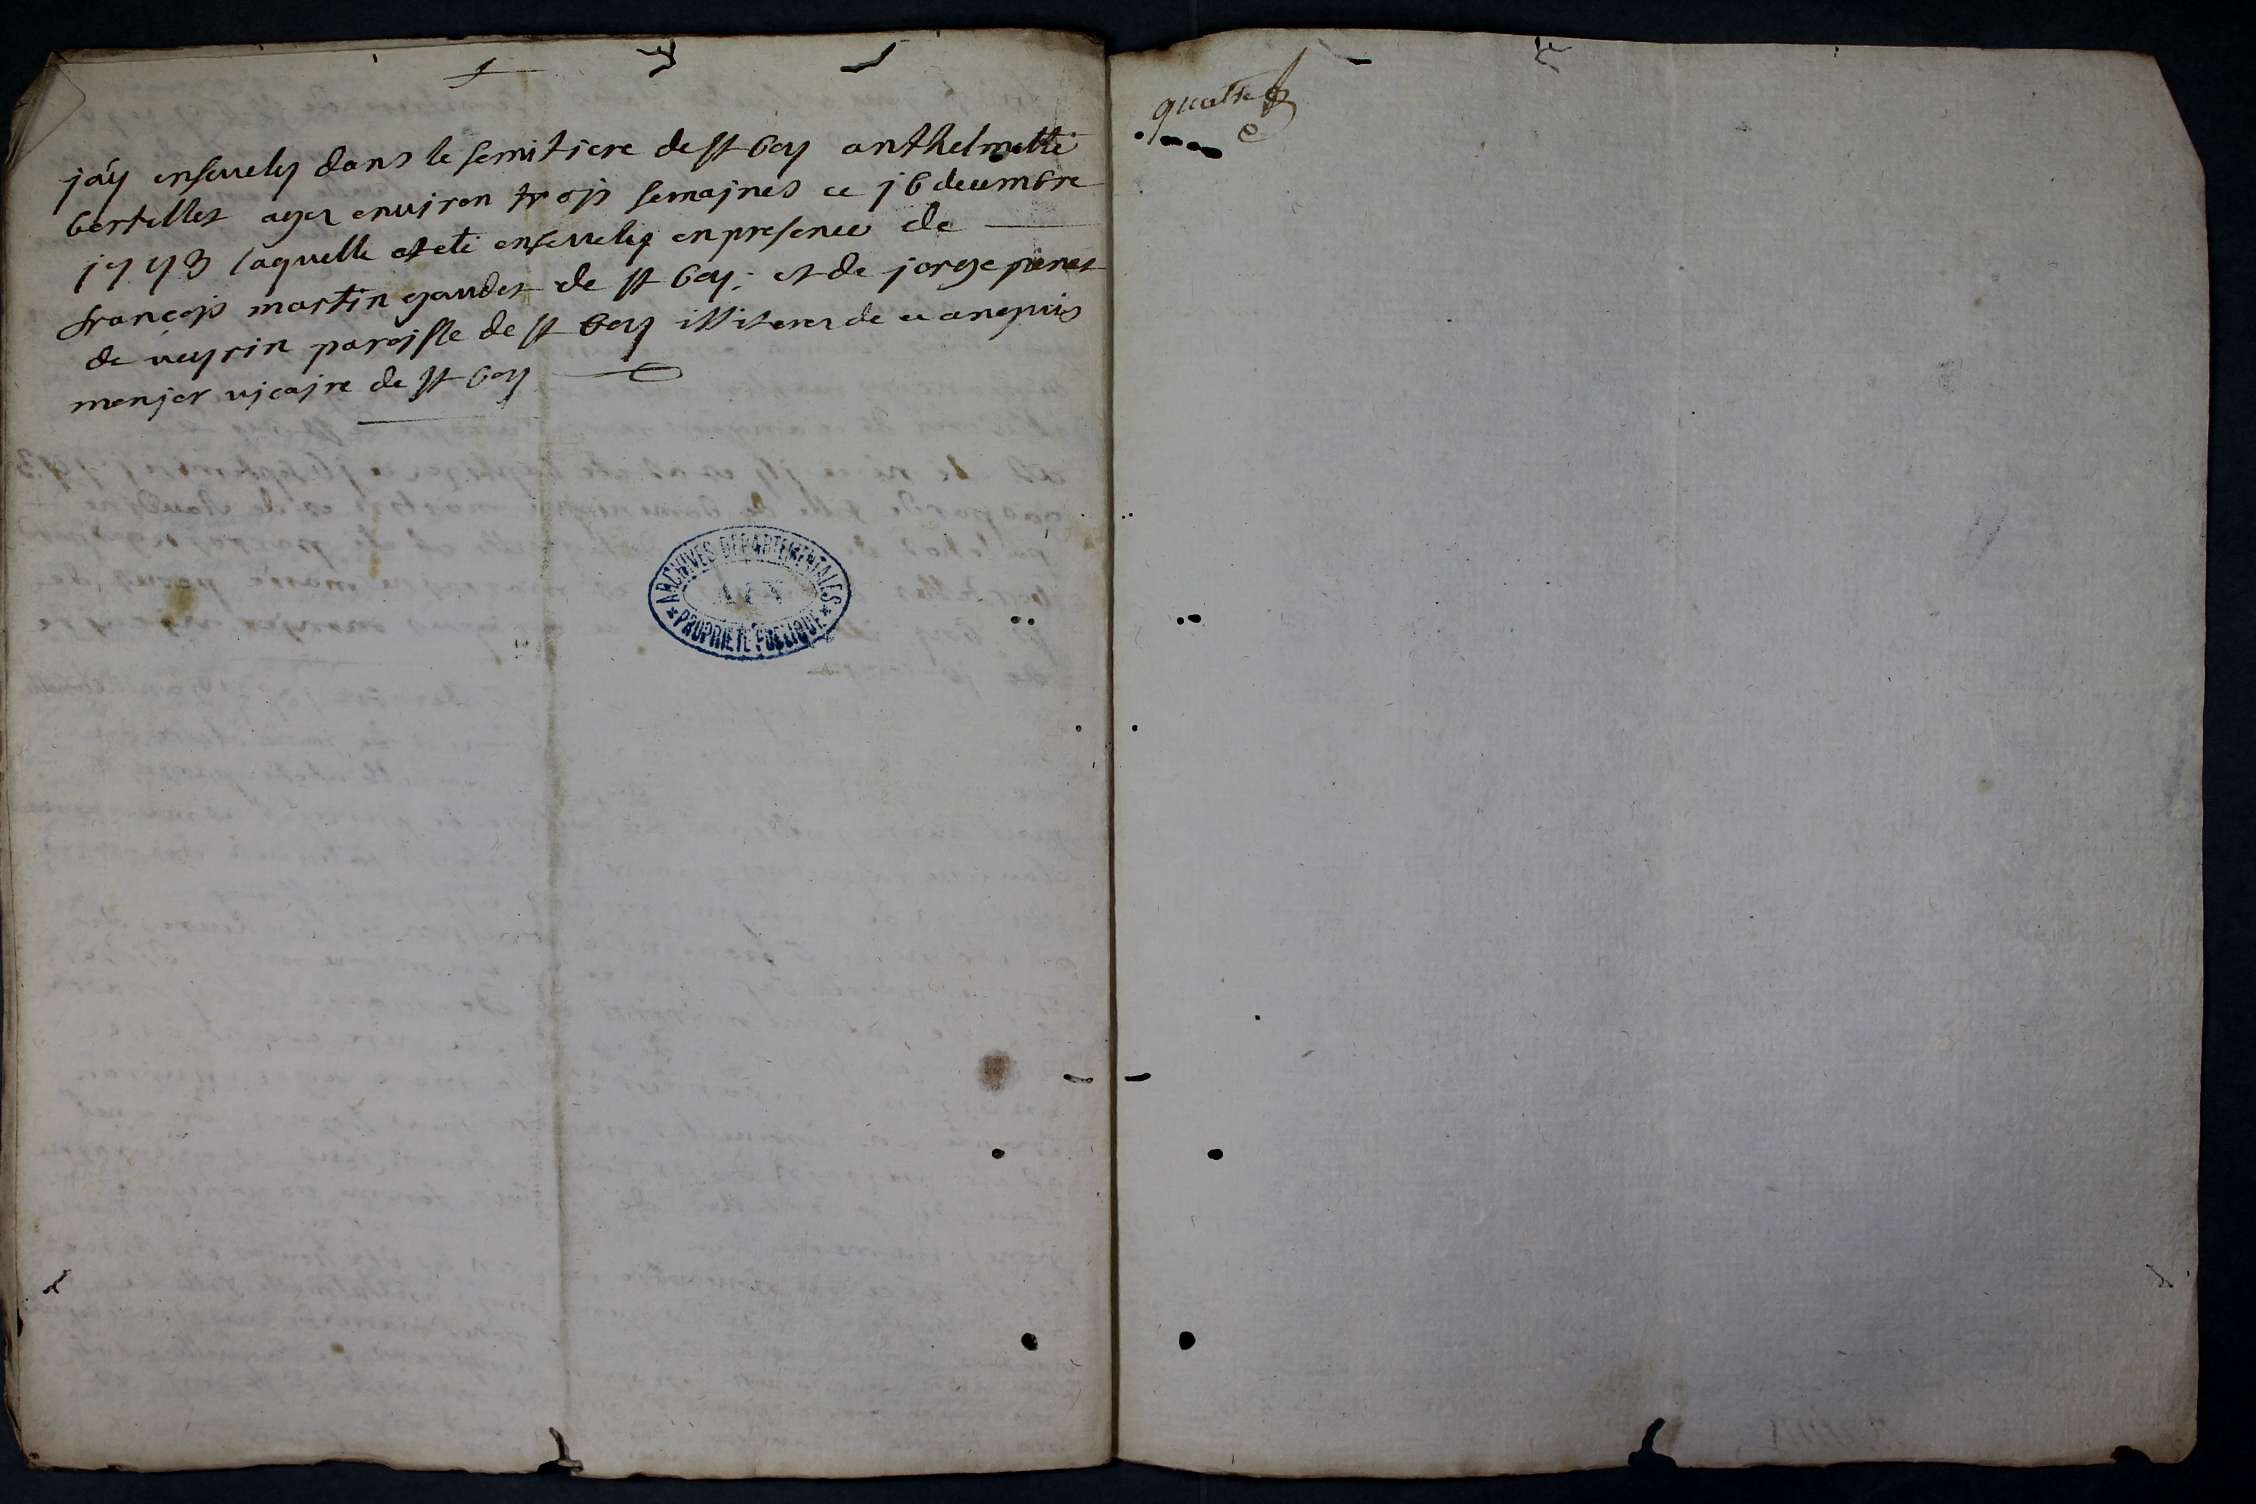 jay ensevely dans le semitiere de st boy anthelmette
bertellet agee environ trojs semajnes ce j6 decembre
j773 laquelle et ete ensevelig en presence de
françojs martin gaudet de st boy. et de jorge pernet
de veyrin parojsse de st boy illiteres de ce anequis
menjer vjcajre de st boy
ARCHIVES DEPARTEMENTALES
AIN
PROPRIETE PUBLIQUE
quatre